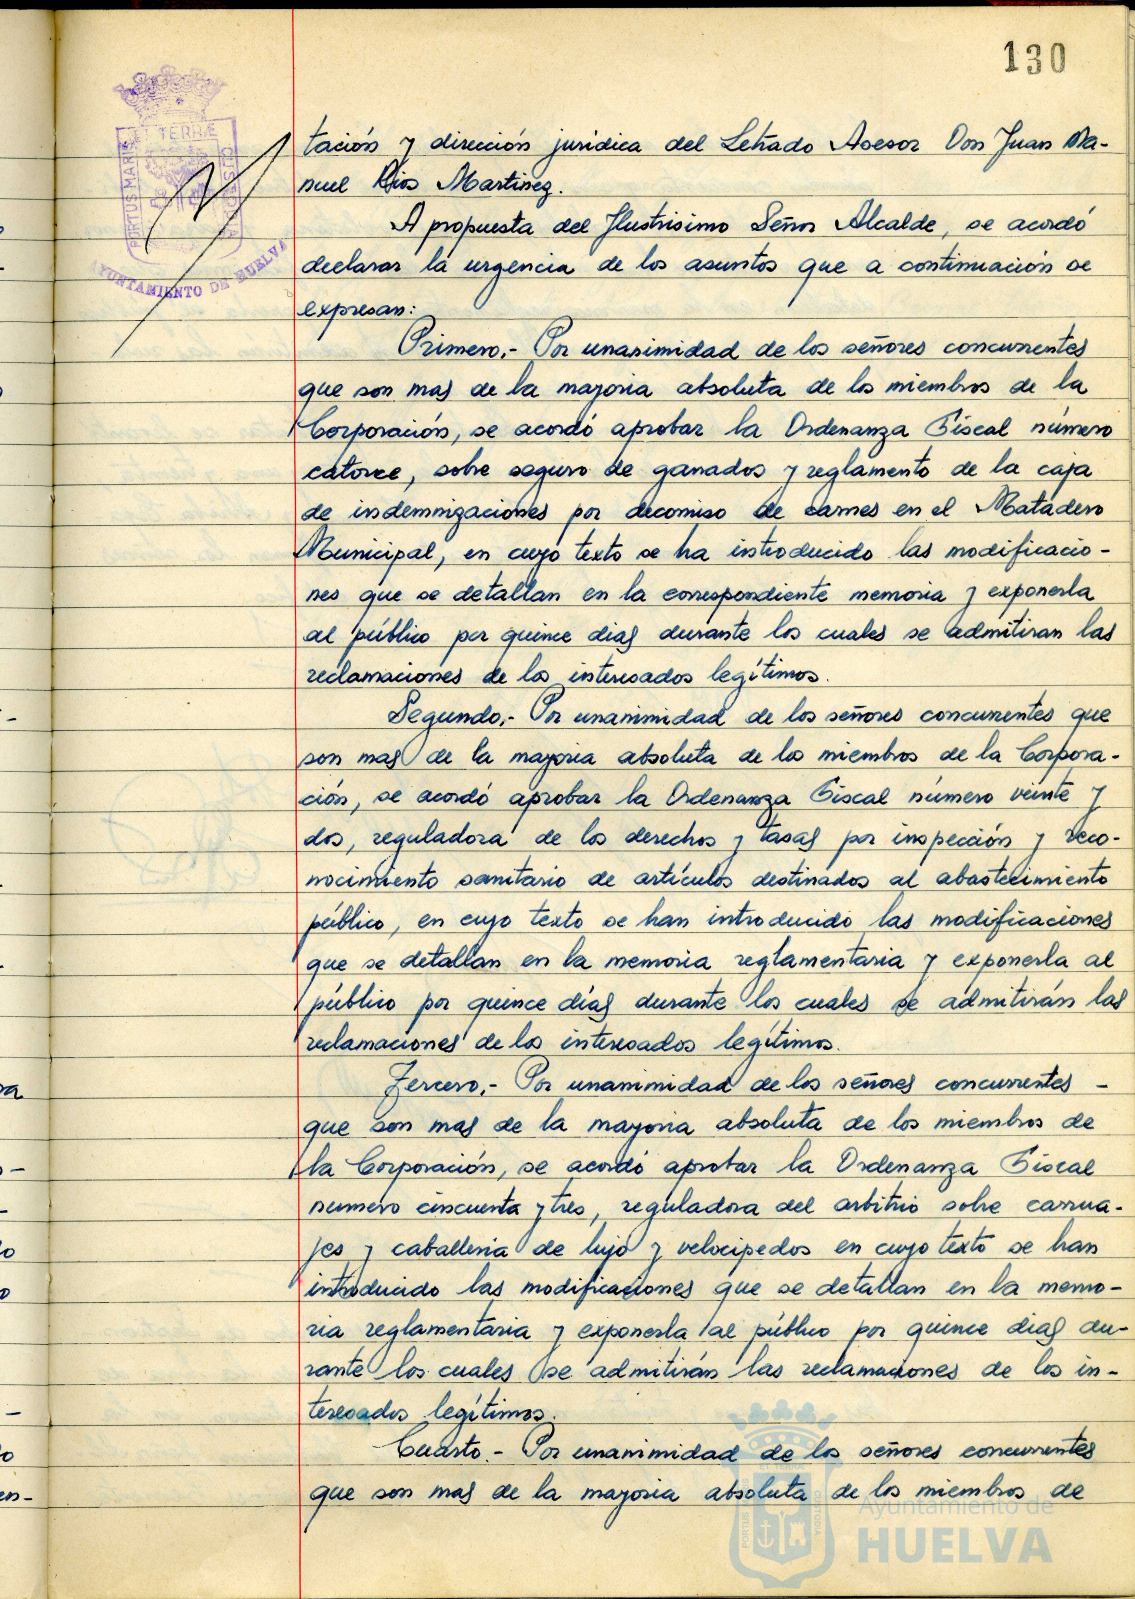 130
PORTUS MARIS ET TERRÆ CUSTODIA
AYUNTAMIENTO DE HUELVA
tación y dirección jurídica del Letrado Asesor Don Juan Ma-
nuel Rios Martinez.
A propuesta del Ilustrisimo Señor Alcalde, se acordó
declarar la urgencia de los asuntos que a continuación se
expresan:
Primero.- Por unanimidad de los señores concurrentes
que son mas de la mayoria absoluta de los miembros de la
Corporación, se acordó aprobar la Ordenanza Fiscal número
catorce, sobre seguro de ganados y reglamento de la caja
de indemnizaciones por decomiso de carnes en el Matadero
Municipal, en cuyo texto se ha introducido las modificacio-
nes que se detallan en la correspondiente memoria y exponerla
al público por quince dias durante los cuales se admitiran las
reclamaciones de los interesados legítimos.
Segundo.- Por unanimidad de los señores concurrentes que
son mas de la mayoria absoluta de los miembros de la Corpora-
ción, se acordó aprobar la Ordenanza Fiscal número veinte y
dos, reguladora de los derechos y tasas por inspección y reco-
nocimiento sanitario de artículos destinados al abastecimiento
público, en cuyo texto se han introducido las modificaciones
que se detallan en la memoria reglamentaria y exponerla al
público por quince días durante los cuales se admitirán las
reclamaciones de los interesados legítimos.
Tercero.- Por unanimidad de los señores concurrentes -
que son mas de la mayoria absoluta de los miembros de
la Corporación, se acordó aprobar la Ordenanza Fiscal
numero cincuenta y tres, reguladora del arbitrio sobre carrua-
jes y caballeria de lujo y velocipedos en cuyo texto se han
introducido las modificaciones que se detallan en la memo-
ria reglamentaria y exponerla al público por quince dias du-
rante los cuales se admitirán las reclamaciones de los in-
teresados legítimos.
Cuarto.- Por unanimidad de los señores concurrentes
que son mas de la mayoria absoluta de los miembros de
Ayuntamiento de
HUELVA